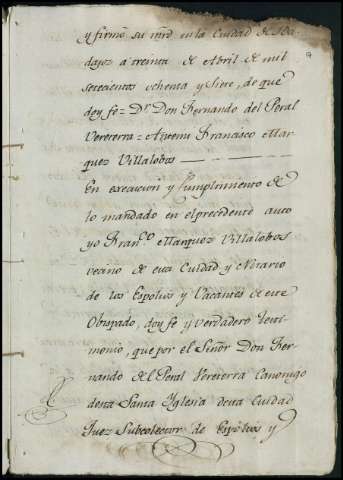 y firmó su mrd en la Ciudad de Ba-
dajoz a treinta de Abril de mil
setecientos ochenta y siete, de que
doy fe = Dr. Don Fernando del Peral
Vereterra = Antemi Francisco Mar-
quez Villalobos
En execucion y Cumplimiento de
lo mandado en el precedente auto
yo Franco. Marquez Villalobos
vecino de esta Ciudad y Notario
de los Espolios y Vacantes de este
Obispado, doy fe y verdadero testi-
monio, que por el Señor Don Fer-
nando del Peral Vereterra Canonigo
desta Santa Yglesia desta Ciudad
Juez Subcolector de Espolios y